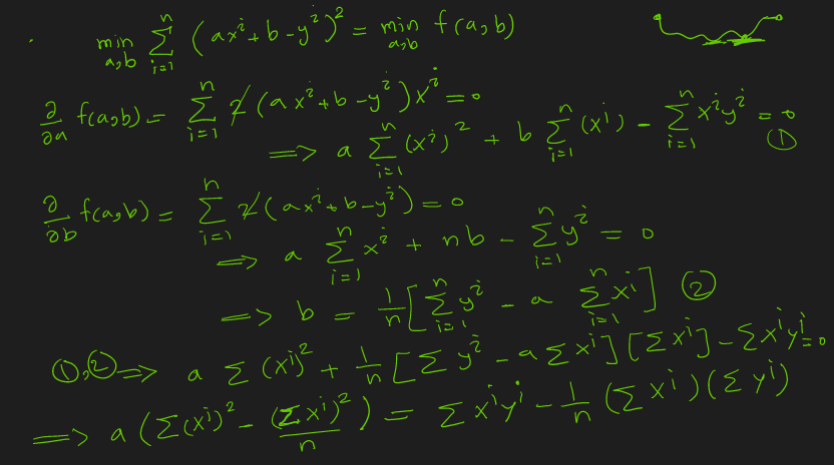 min_{a,b} \sum_{i=1}^{n} (ax^i + b - y^i)^2 = min_{a,b} f(a,b)
\frac{∂}{∂a} f(a,b) = \sum_{i=1}^{n} \cancel{2} (ax^i + b - y^i) x^i = 0
⟹ a \sum_{i=1}^{n} (x^i)^2 + b \sum_{i=1}^{n} (x^i) - \sum_{i=1}^{n} x^i y^i = 0 ①
\frac{∂}{∂b} f(a,b) = \sum_{i=1}^{n} \cancel{2} (ax^i + b - y^i) = 0
⟹ a \sum_{i=1}^{n} x^i + nb - \sum_{i=1}^{n} y^i = 0
⟹ b = \frac{1}{n} [\sum_{i=1}^{n} y^i - a \sum_{i=1}^{n} x^i] ②
①,② ⟹ a \sum (x^i)^2 + \frac{1}{n} [\sum y^i - a \sum x^i] [\sum x^i] - \sum x^i y^i = 0
⟹ a (\sum (x^i)^2 - \frac{(\sum x^i)^2}{n}) = \sum x^i y^i - \frac{1}{n} (\sum x^i)(\sum y^i)